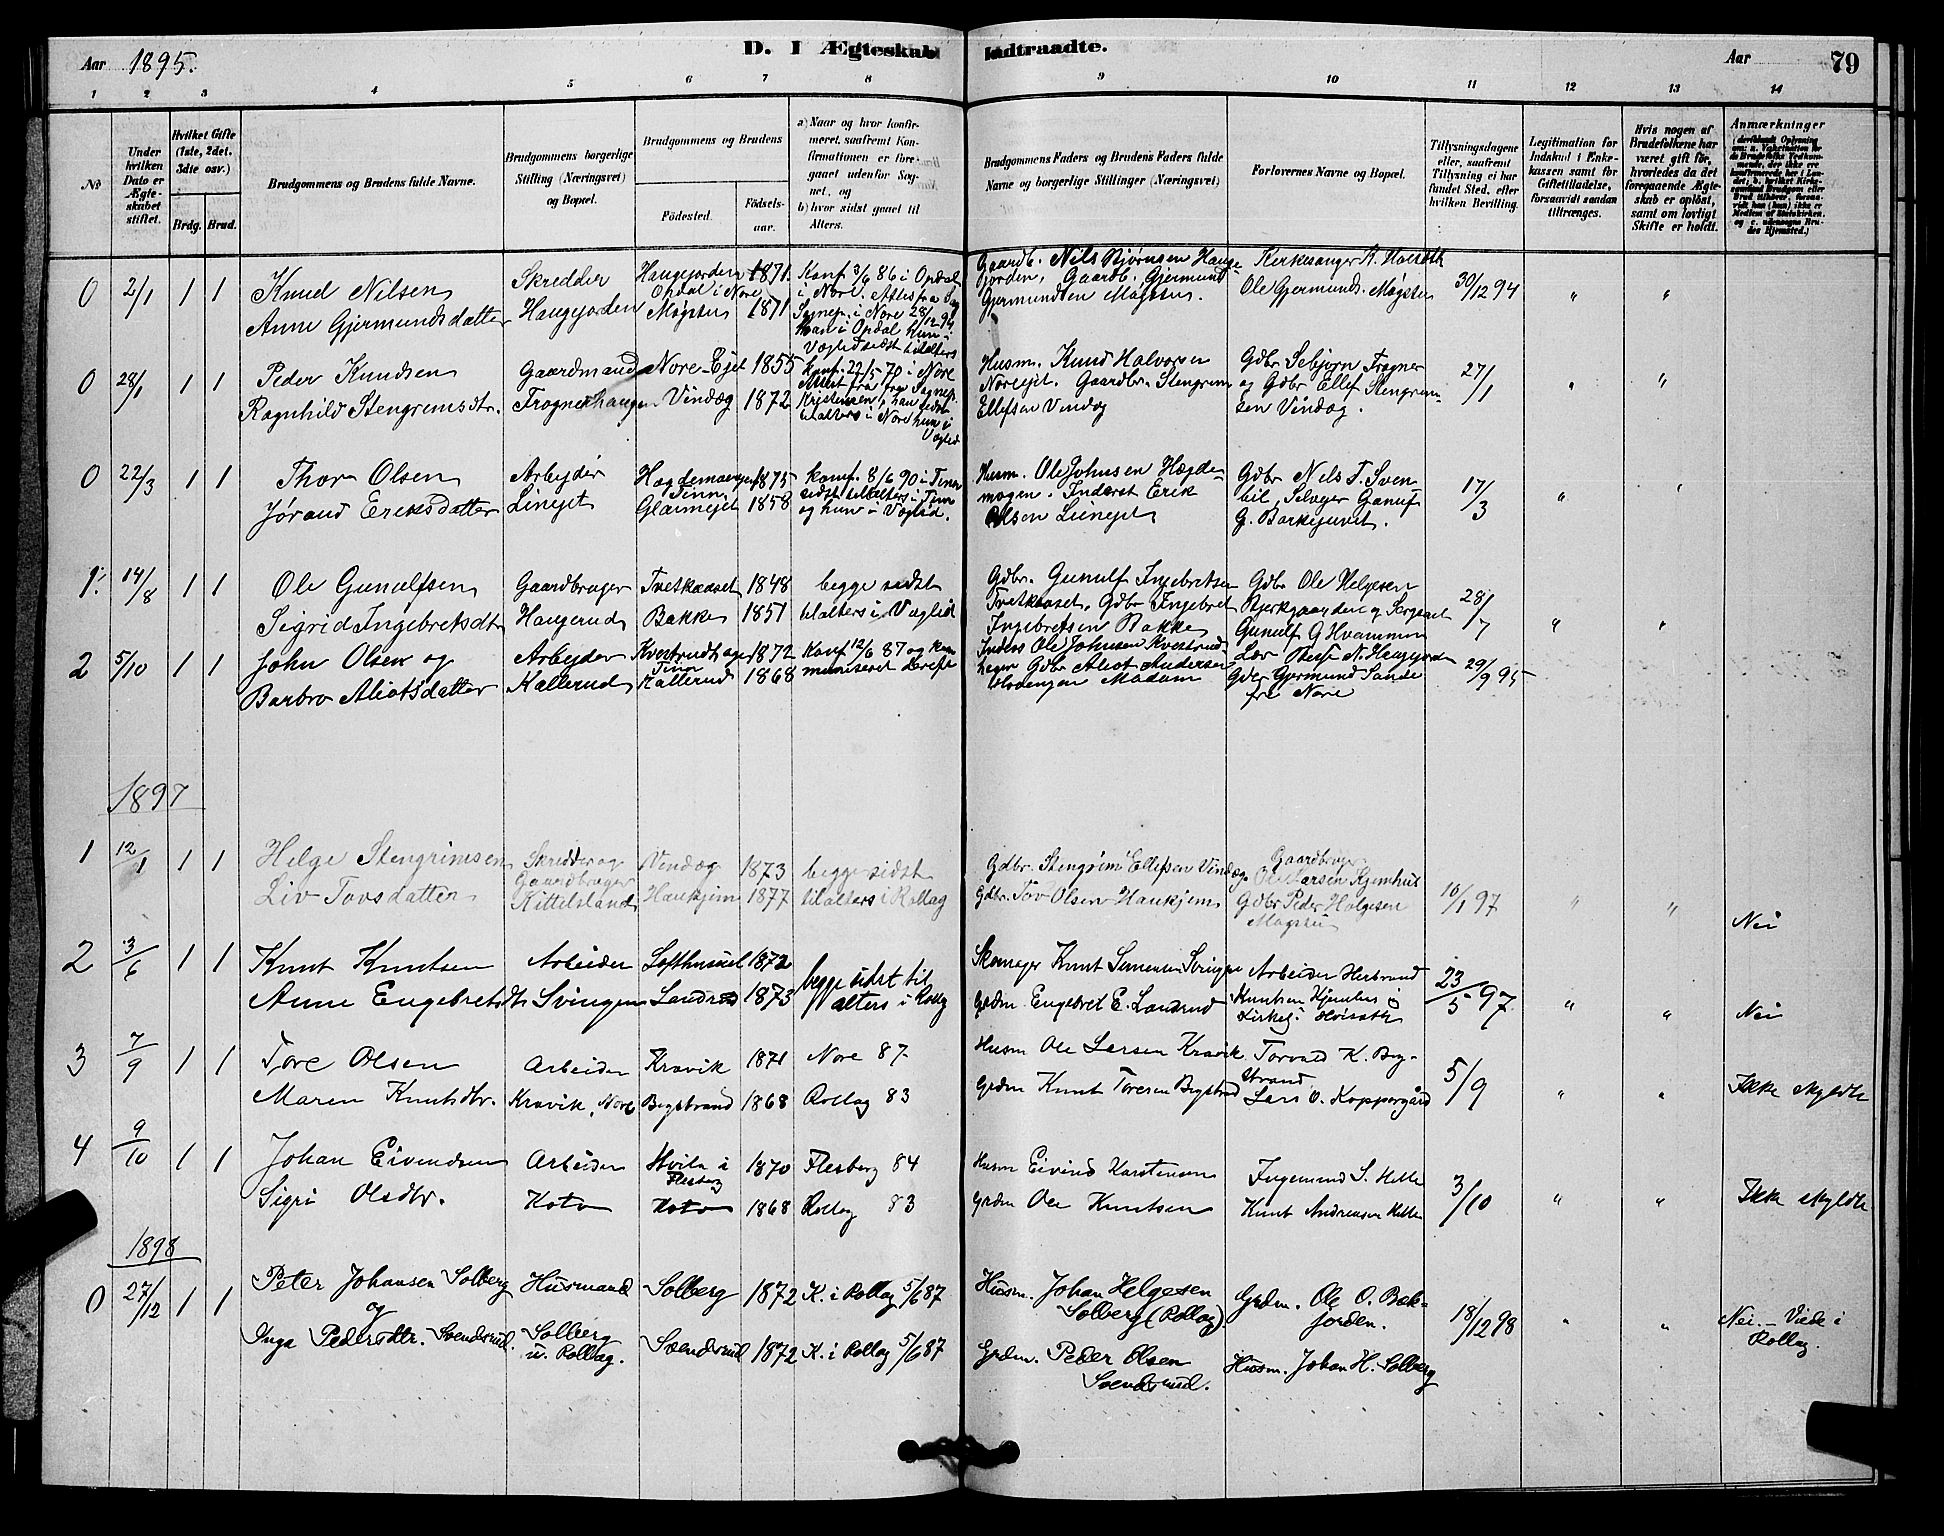 Aar 1895.
D. I Ægteskab Indtraadte.
Aar
79
1 2 3 4 5 6 7 8 9 10 11 12 13 14
No
Under hvilken Dato er Ægteskabet stiftet.
Hvilket Gifte (1ste, 2det. 3dte osv.)
Brdg. Brud.
Brudgommens og Brudens fulde Navne.
Brudgommens borgerlige Stilling (Næringsvei) og Bopæl.
Brudgommens og Brudens
Födested.
Födsels-aar.
a) Naar og hvor konfirmeret, saafremt Konfirmationen er foregaaet udenfor Sognet, og
b) hvor sidst gaaet til Alters.
Brudgommens Faders og Brudens Faders fulde Navne og borgerlige Stillinger (Næringsvei)
Forlovernes Navne og Bopæl.
Tillysningsdagene eller, saafremt Tillysning ei har fundet Sted, efter hvilken Bevilling.
Legitimation for Indskud i Enkekassen samt for Giftetilladelse, forsaavidt saadan tiltrænges.
Hvis nogen af Brudefolkene har været gift før, hvorledes da det foregaaende Ægteskab er oplöst, samt om lovligt Skifte er holdt.
Anmærkninger
0 2/1 1 1 Knud Nilsen
Anne Gjermundsdatter
Skredder
Haugejorden
Haugejorden Opdal i Nore 1871.
Møgsters 1871
Konf 3/6 86 i Opdal
i Nore. Attest fra
Sognep. i Nore 28/12 94.
han i Opdal hun i
Væglid sidst tilalters
Gaardb. Nils Bjørnsen Hauge-
jorden, Gaardb. Gjermund
Gjermundsen Møgster.
Kirkesanger A. Hoiseth
Ole Gjermunds. Møgster
30/12 94 " "
0 28/1 1 1 Peder Knudsen
Ragnhild Stengrimsdtr.
Gaardmand
Frognerhaugen
Nore-Ejet 1855
Vindæg 1872
Konf. 22/5 70 i Nore
Attest fra Sognep.
Kristensen, han sidst
tilalters i Nore hun i
Væglid
Husm. Knud Halvorsen
Noreejet. Gaardbr. Stengrim
Ellefsen Vindæg
Gdbr Sebjørn Frogner
og Gdbr Ellef Stengrim-
sen Vindæg.
27/1 " "
0 22/3 1 1 Thor Olsen
Jørand Eriksdatter
Arbejder
Liniejet
Hægdemogen Tinn 1875
Glaimejet 1858
Konf. 8/6 90 i Tinn
sidst tilalters i Tinn
og hun i Væglid.
Husm. Ole Johnsen Hægde-
mogen. Inderst Erik
Olsen Liniejet
Gdbr Nils T. Sven
Selvejer Gunulf
G. Barkejuvet.
17/3 " "
1. 14/8 1 1 Ole Gunulfsen
Sigrid Ingebretsdtr
Gaardbruger
Haugerud
Tveitkaaset 1848
Bakke 1851
begge sidst
tilalters i Væglid
Gdbr. Gunulf Ingebretsen
Tveitkaaset, Gdbr Ingebret
Ingebretsen Bakke
Gdbr Ole Helgesen
Bjerkgaarden og
Gunulf G Hvammen
28/7 " "
2 5/10 1 1 John Olsen og
Barbro Aliotsdatter
Arbejder
Kallerud
Kvestrudhagen Tinn 1872
Kallerud 1868
Konf 12/6 87 og kom
muniseret derefter
Inders Ole Johnsen Kvestrud
hagen Gdbr Aliot Andersen
Madam
N. Haugejorden
Gdbr Gjermund Sande
fra Nore
29/9 95
1897
1 12/1 1 1 Helge Stengrimsen
Liv Tovsdatter
Skredder og
Gaardbruger
Kittelsland
Vindæg 1873
Haukjem 1877
begge sidst
tilalters i Rollag
Gdbr. Stengrim Ellefsen Vindæg
Gdbr. Tov Olsen Haukjem
Gaardbruger
Ole Larsen Kjemhus
Gdbr Peder Helgesen
Møgster
10/1 97 " " Nei
2 3/6 1 1 Knut Knutsen
Anne Engebretsdtr
Arbeider
Svingen
Lofthusuel 1872
Landrud 1873
begge sidst til
alters i Rollag
Skomager Knut Simensen Svingen
Grdm. Engebret E. Landrud
Arbeider Herbrand
Knutsen Kjemhus
Kirkes. Hoiseth
23/5 97 " " Nei
3 7/9 1 1 Tore Olsen
Maren Knutsdtr.
Arbeider
Kravik, Nore
Kravik 1871
Bygstrand 1868
Nore 87
Rollag 83
Husm Ole Larsen Kravik
Grdm Knut Toresen Bygstrand
Torvald K. Byg-
strand
Lars O. Koppergård
5/9 " " Ikke skyldte
4 9/10 1 1 Johan Eivendsen
Sigri Olsdtr.
Arbeider
Hoto
Hvila i Flesberg 1870
Hoto 1868
Flesberg 84
Rollag 83
Husm Eivind Karstensen
Grdm Ole Knutsen
Ingemund S. Helle
Knut Andreasen Helle
3/10 " " Ikke skyldte
1898
0 27/12 1 1 Peter Johansen Solberg
og
Inga Pedersdtr. Svendsrud.
Husmand
Solberg
u. Rollag.
Solberg 1872
Svendsrud 1872
K. i Rollag 5/6 87
K. i Rollag 5/6 87
Husm. Johan Helgesen
Solberg (Rollag).
Grdm. Peder Olsen
Svendsrud.
Grdm. Ole O. Bæk-
jorden.
Husm. Johan H. Solberg
18/12 98 " " Nei. - Viede i
Rollag.